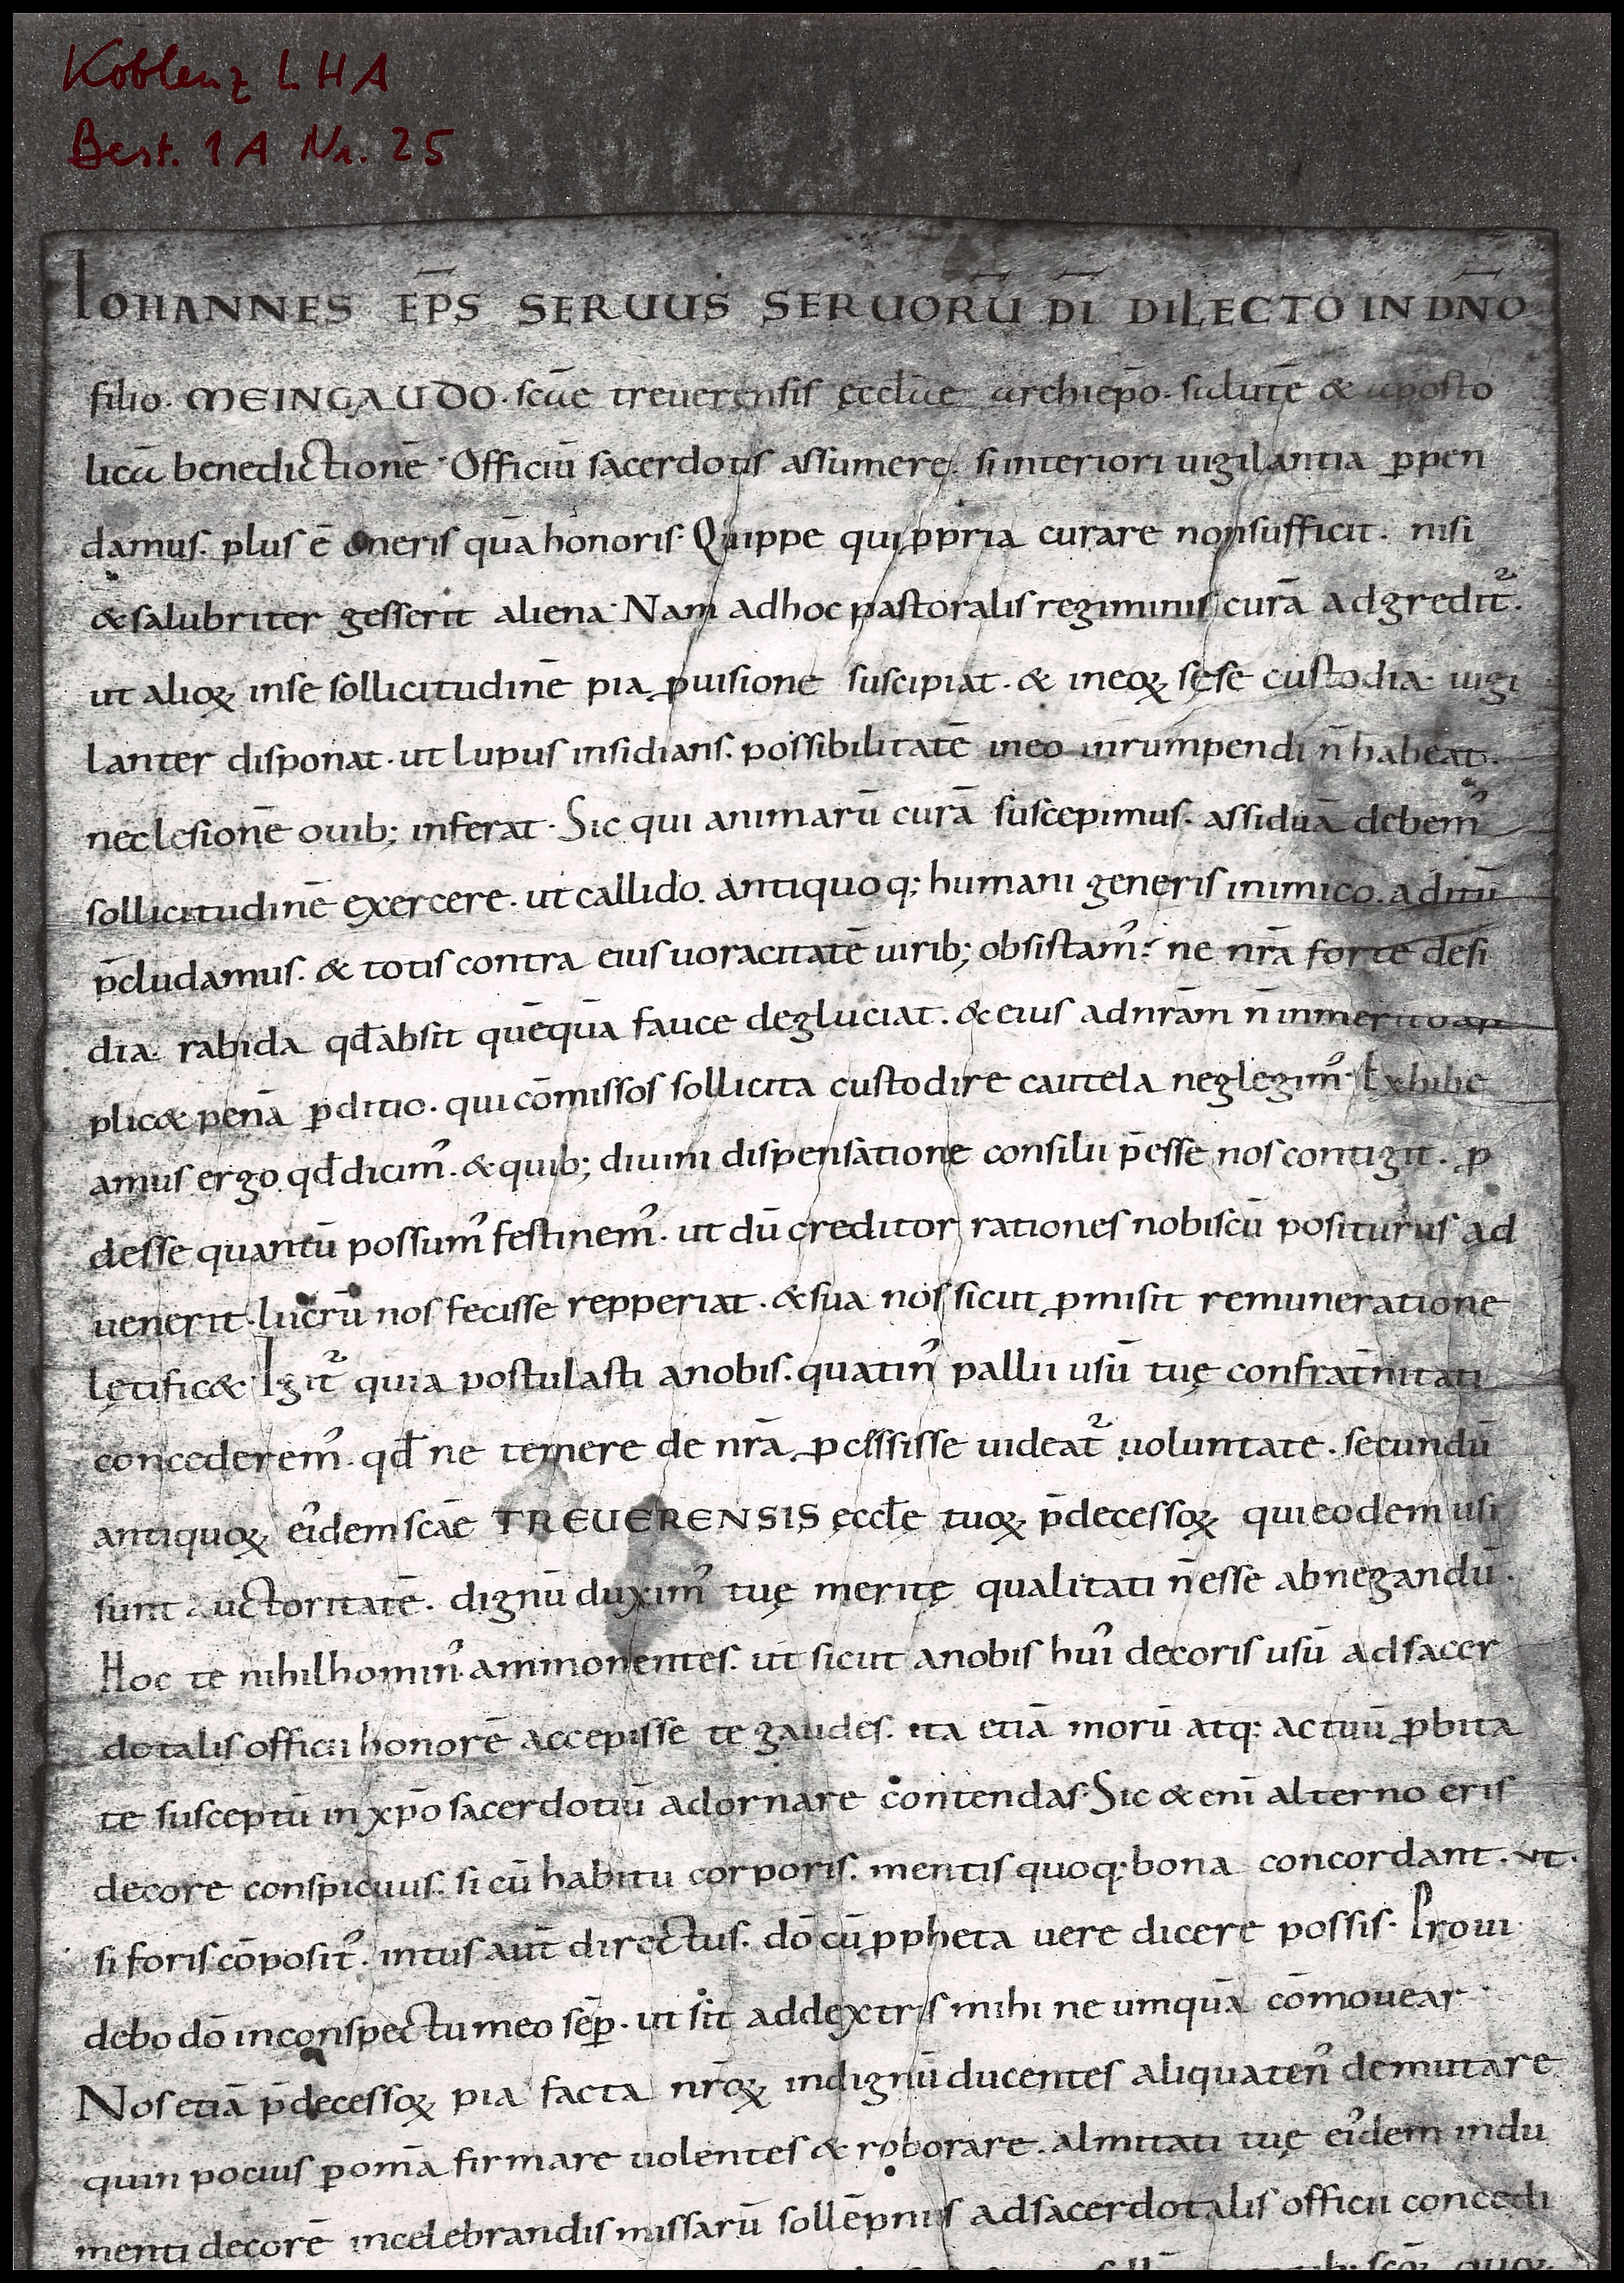 Koblenz LHA
Best. 1 A Nr. 25
IOHANNES EP̄S SERUUS SERUORŪ DĪ DILECTO IN DN̄O
filio· MEINGAUDO· scāe treuerensis ęcclāe archiepō· salutē & aposto
licā benedictionē· Officiū sacerdotis assumere· si interiori uigilantia ꝑpen
damus· plus ē oneris quā honoris· Quippe qui ꝓpria curare non sufficit· nisi
& salubriter gesserit aliena· Nam ad hoc pastoralis regiminis curā adgredit᷑·
ut alioꝝ in se sollicitudinē pia ꝓuisione suscipiat· & in eoꝝ sese custodia uigi
lanter disponat· ut lupus insidians· possibilitatē in eo inrumpendi n̄ habeat·
nec lesionē ouib; inferat· Sic qui animarū curā suscepimus· assiduā debem᾿
sollicitudinē exercere· ut callido· antiquoq; humani generis inimico· aditū
p̄cludamus· & totis contra eius uoracitatē uirib; obsistam᾿· ne nr̄a forte desi
dia rabida qđ absit quēquā fauce degluciat· & eius ad nr̄am n̄ inmerito ap
plic& penā ꝑditio· qui cōmissos sollicita custodire cautela neglegim᾿· Exhibe
amus ergo qđ dicim᾿· & quib; diuini dispensatione consilii p̄esse nos contigit· ꝓ
desse quantū possum᾿ festinem᾿· ut dū creditor rationes nobiscū positurus ad
uenerit· lucrū nos fecisse repperiat· & sua nos sicut ꝓmisit remuneratione
lętific&· Igit᷑ quia postulasti a nobis· quatin᾿ pallii usū tuę confrat̄nitati
concederem᾿· qđ ne temere de nr̄a ꝓcessisse uideat᷑ uoluntate· secundū
antiquoꝝ ei᾿dem scāe TREUERENSIS ęcclē tuoꝝ p̄decessoꝝ qui eodem usi
sunt auctoritatē· dignū duxim᾿ tuę meritę qualitati n̄ esse abnegandū·
Hoc te nihilhomin᾿ ammonentes· ut sicut a nobis hui᾿ decoris usū ad sacer
dotalis officii honorē accepisse te gaudes· ita etiā morū atq; actuū ꝓbita
te susceptū in xp̄o sacerdotiū adornare contendas· Sic & enī alterno eris
decore conspicuus· si cū habitu corporis· mentis quoq; bona concordant· ut·
si foris cōposit᾿· intus aut̄ directus· dō cū ꝓpheta uere dicere possis· Proui
debo dō in conspectu meo sēꝑ· ut sit a dextris mihi ne umquā cōmouear·
Nos etiā p̄decessoꝝ pia facta nr̄oꝝ indignū ducentes aliquaten᾿ demutare
quin pocius ꝑ omā firmare uolentes & roborare· almitati tuę ei᾿dem indu
menti decorē in celebrandis missarū sollēpniis ad sacerdotalis officii concedi